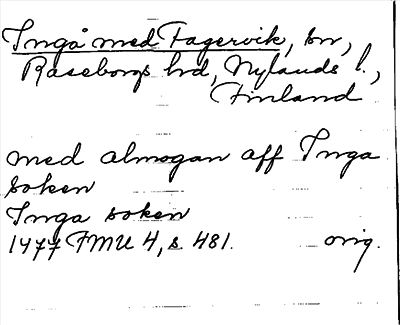 Ingå med Fagervik, sn,
Raseborgs hd, Nylands l.,
Finland
med almogan aff Inga
soken
Inga soken
1477 FMU 4, s. 481. orig.